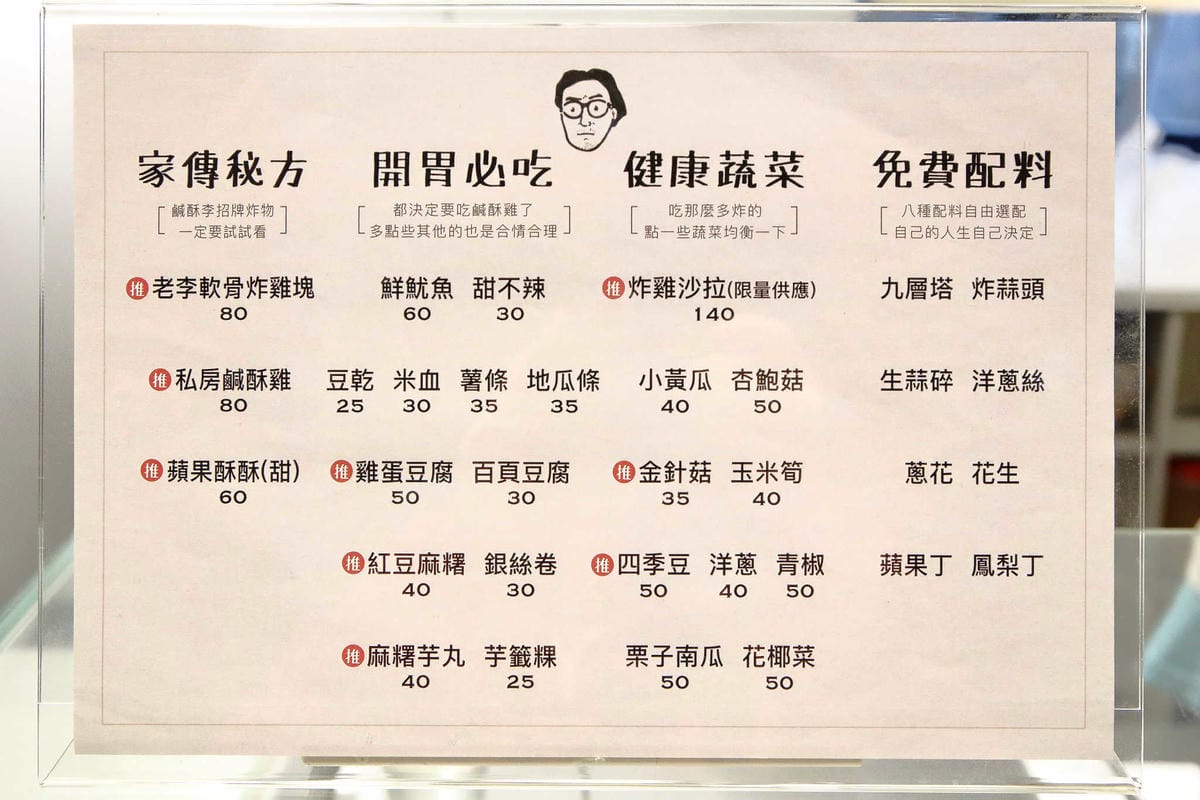 家傳秘方
鹹酥李招牌炸物
一定要試試看
推 老李軟骨炸雞塊
80
推 私房鹹酥雞
80
推 蘋果酥酥(甜)
60
開胃必吃
都決定要吃鹹酥雞了
多點些其他的也是合情合理
鮮魷魚 甜不辣
60 30
豆乾 米血 薯條 地瓜條
25 30 35 35
推 雞蛋豆腐 百頁豆腐
50 30
推 紅豆麻糬 銀絲卷
40 30
推 麻糬芋丸 芋籤粿
40 25
健康蔬菜
吃那麼多炸的
點一些蔬菜均衡一下
推 炸雞沙拉(限量供應)
140
小黃瓜 杏鮑菇
40 50
推 金針菇 玉米筍
35 40
推 四季豆 洋蔥 青椒
50 40 50
栗子南瓜 花椰菜
50 50
免費配料
八種配料自由選配
自己的人生自己決定
九層塔 炸蒜頭
生蒜碎 洋蔥絲
蔥花 花生
蘋果丁 鳳梨丁